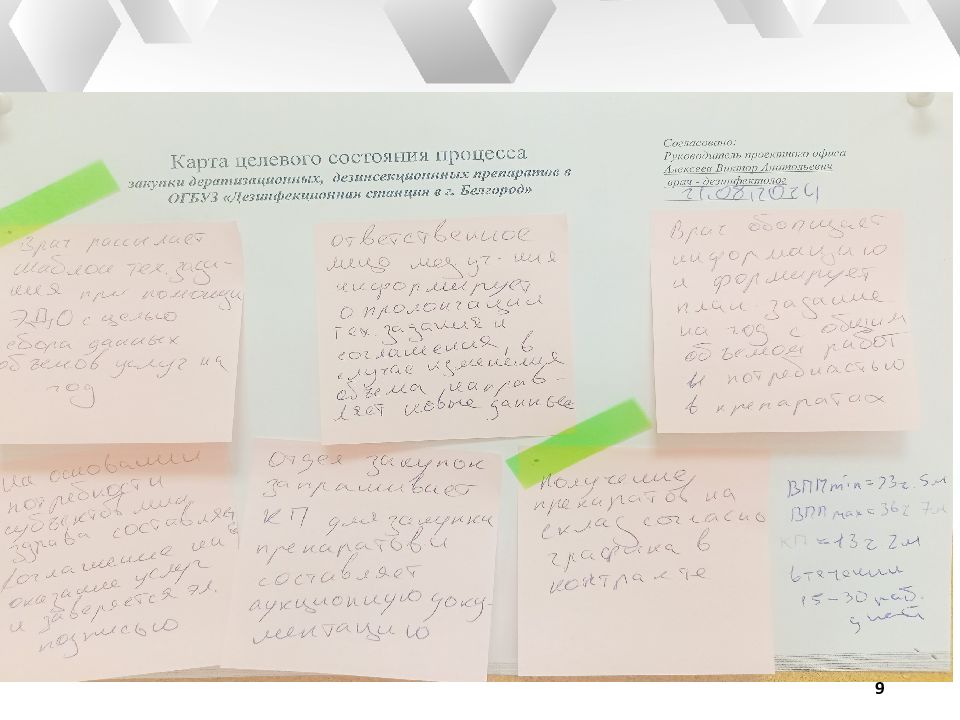 Карта целевого состояния процесса
закупки дератизационных, дезинсекционных препаратов в
ОГБУЗ «Дезинфекционная станция в г. Белгород»
Согласовано:
Руководитель проектного офиса
Алексеев Виктор Анатольевич
врач - дезинфектолог
21.08.2024
Врач рассылает
шаблон тех. зада-
ния при помощи
ЭДО с целью
сбора данных
объемов услуг на
год
ответственное
лицо мед уч-ния
информирует
о пролонгации
тех. задания и
соглашения, в
случае изменения
объема, направ-
ляет новые данные
Врач обобщает
информацию
и формирует
план-задание
на год с общим
объемом работ
и потребностью
в препаратах
на основании
потребности
субъектов мин.
здрава составляется
соглашение на
оказание услуг
и заверяется эл.
подписью
Отдел закупок
запрашивает
КП для закупки
препаратов и
составляет
аукционную доку-
ментацию
получение
препаратов на
склад согласно
графика в
контракте
ВПП min = 23 ч. 5 м
ВПП max = 36 ч 7 м
КП = 13 ч 2 м
в течении
15-30 раб.
дней
9